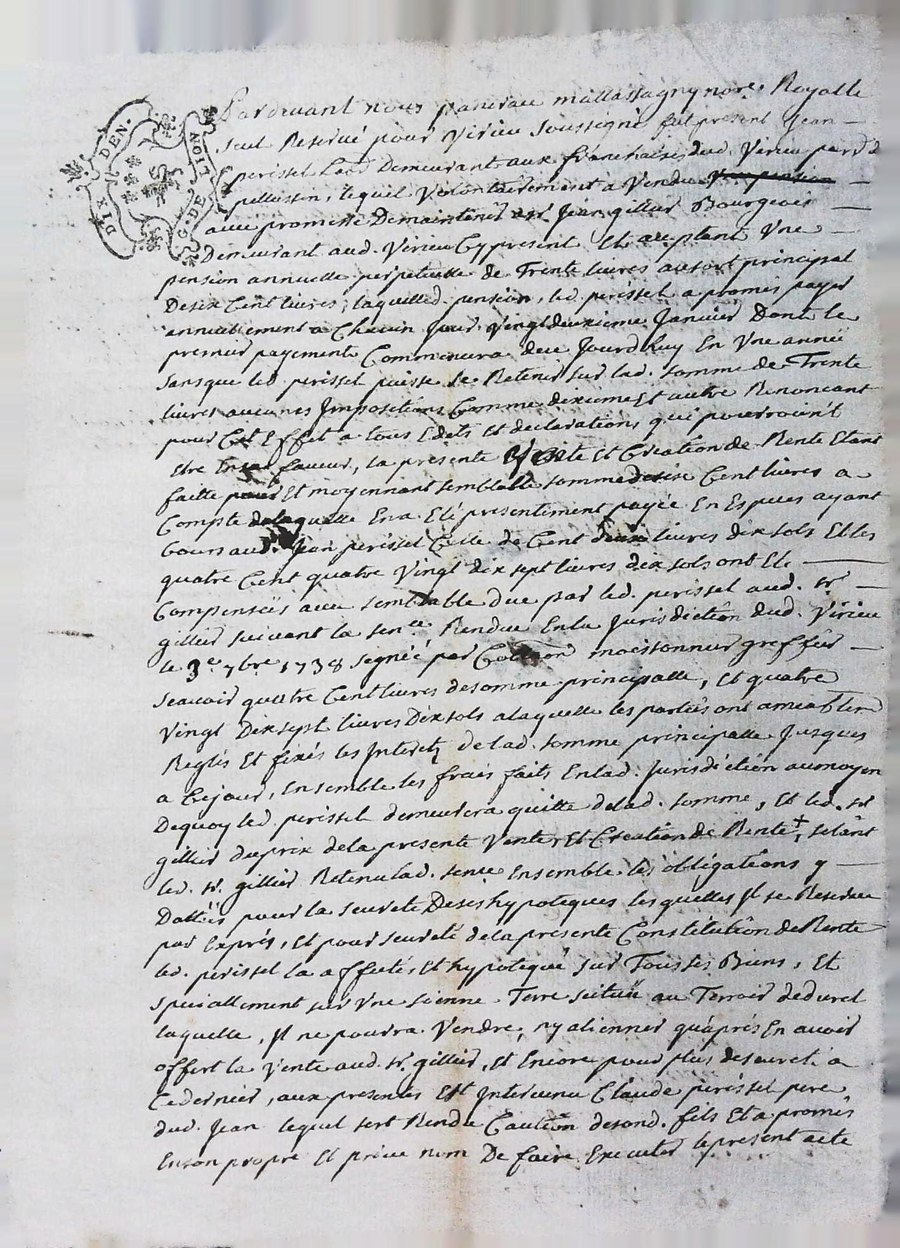 DIX DEN. G. DE NOIT
Pardevant nous pancrau mallassagny nore. Royalle
seul Reservé pour Virieu soussigné fut present Jean
perissel Lad Demeurant aux franchaises dud. Virieu par d
pellussin, lequel Volontairement a Vendu
avec promesse De maintenir Jean gillier Bourgeois
Demeurant aud. Virieu Cy present Et aceptant Vne
pension annuelle perpetuelle de Trente livres au sort principal
De six Cent livres, laquelle d. pension, led. perissel a promis payer
annuellement a Chacun Jour, Vingt deuxieme Janvier Dont le
premier payement Commencera de ce Jourdhuy En Vne année
sans que led perissel puisse se Retenir sur lad. somme de Trente
livres aucunes Impositions Comme dixieme Et autre Renoncant
pour Cet Effet a tous Edets Et declarations, qui pourroint
Etre En sa faveur, la presente Et Creation de Rente Etant
faitte Et moyennant semblable somme de six Cent livres a
Compte de laquelle En a Eté presentiment payée En Especes ayant
Cours aud. Jean perissel Celle de Cent deux livres dix sols Et les
quatre Cent quatre Vingt dix sept livres dix sols ont Eté
Compensées avec semblable due par led. perissel aud. sr.
gillier suivant la sence. Rendue En la Jurisdiction dud. Virieu
le 3e. 7bre 1738 segnée par moissonnier greffier
seavoir quatre Cent livres de somme principalle, Et quatre
Vingt Dix sept livres Dix sols a laquelle les parties ont amiablem
Reglés Et fixés les Interets de lad. somme principalle Jusques
a Ce jour, En semble les frais faits En lad. Jurisdiction au moyen
De quoy led. perissel demeurera quitte de lad. somme, Et led. sr
gillier du prix de la presente Vente Et Creation de Rente +, setant
led. sr. gillier Retenu lad. sence Ensemble les obligations y
Dattées pour la seureté De ses hypoteques les quelles Il se Reserve
par Exprés, Et pour seureté de la presente Constitution de Rente
led. perissel la affecté, Et hypotequé sur Tous ses Biens, Et
speciallement sur Vne sienne Terre scituée au Terroir de duret
laquelle, Il ne pourra Vendre, ny alienner qu'aprés En avoir
offert la Vente aud. sr. gillier, Et Encore pour plus de seureté a
Ce dernier, aux presentes Est Intervenu Claude perissel pere
dud. Jean lequel sert Rendu Caution de sond. fils Et a promis
En son propre Et privé nom De faire Executer le present acte